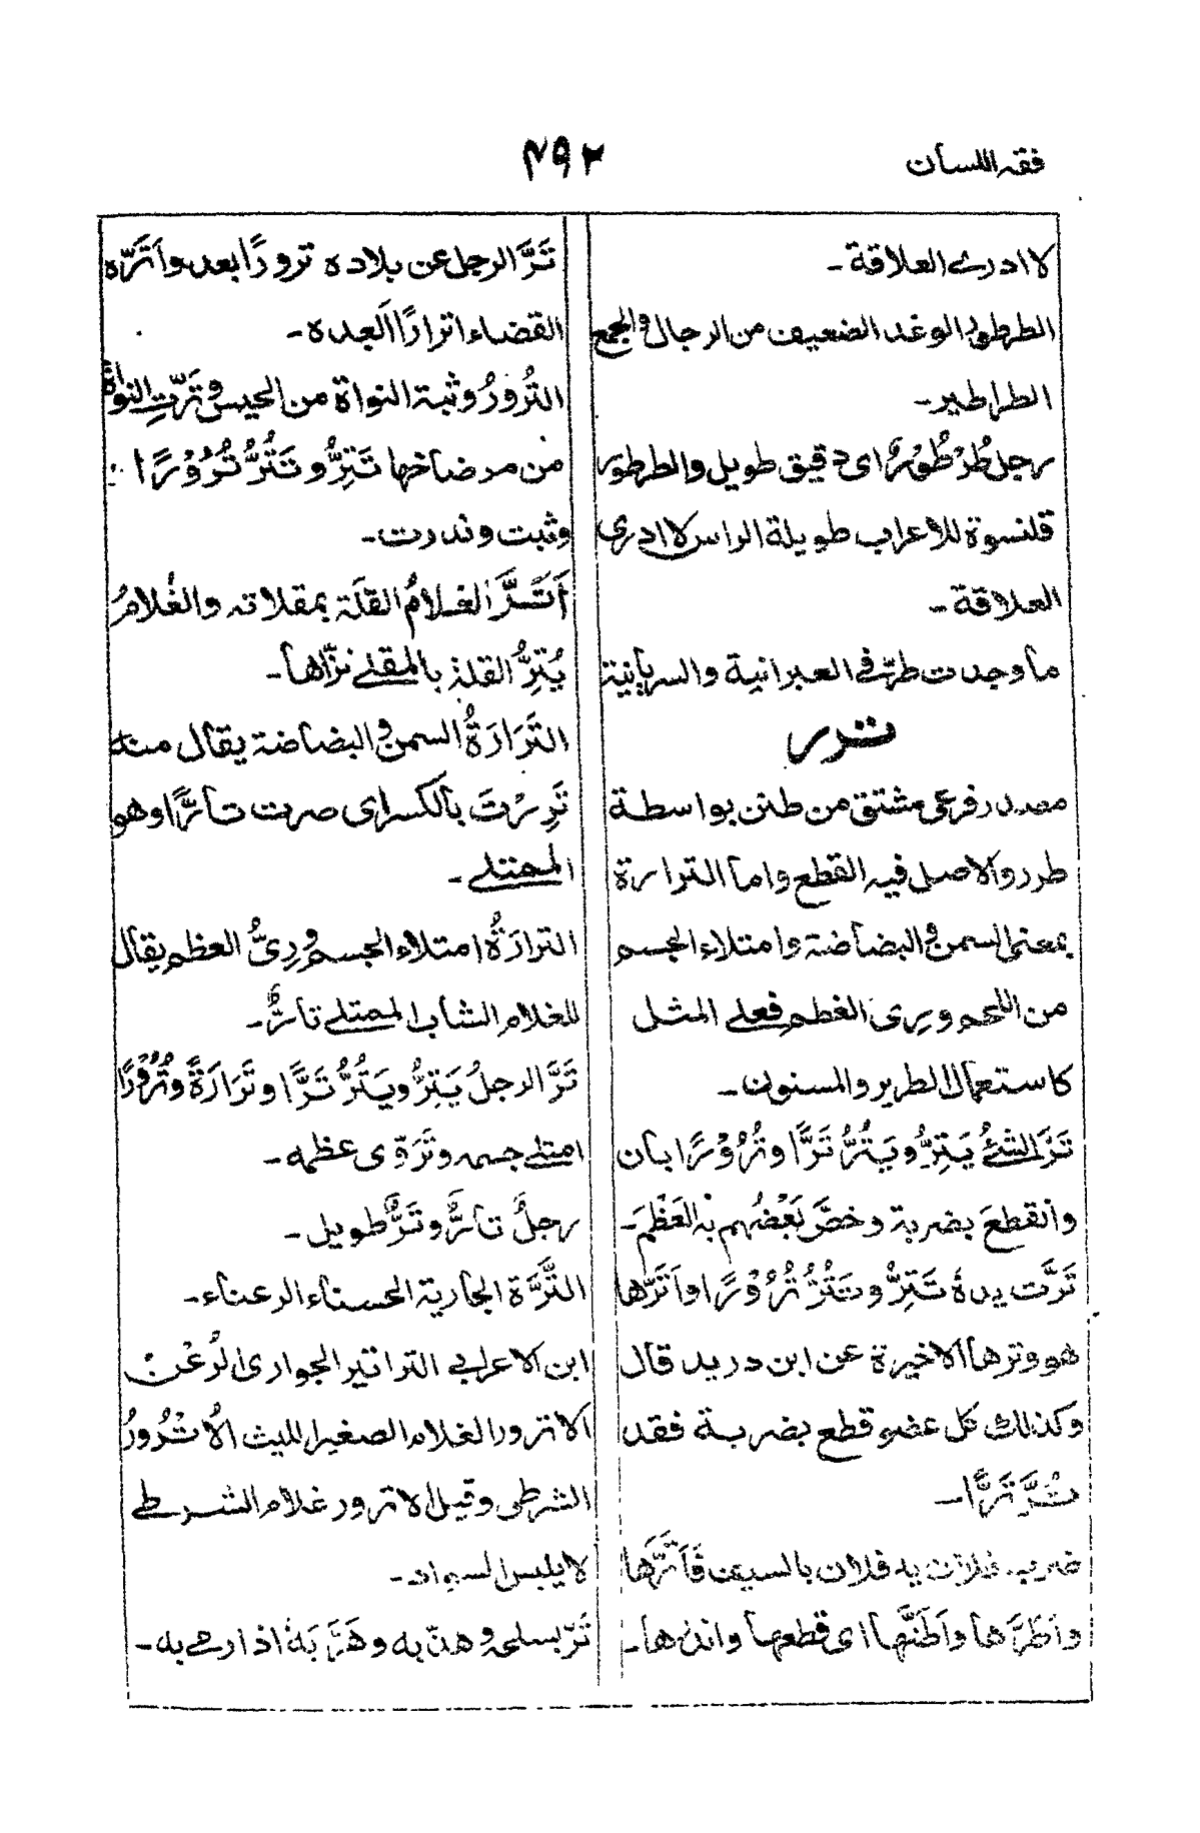 فقه اللسان
٤٩٢
لا ادرى العلاقة۔
الطرطور الوغد الضعيف من الرجال والجمع
الطراطير۔
رجل طُرْطُوْرٌ اى دقيق طويل والطرطور
قلنسوة للاعراب طويلة الراس لا ادرى
العلاقة۔
ما وجدت طرّ فى العبرانية والسريانية
ترر
مصدر فرعى مشتق من طنن بواسطة
طرر والاصل فيه القطع واما الترارة
بمعنى السمن والبضاضة وامتلاء الجسم
من اللحم ورى العظم فعلى المثل
كاستعمال الطرير والمسنون۔
تَرَّ الشئُ يَتِرُّ ويَتُرُّ تَرًّا وتُرُوْرًا بان
وانقطعَ بضربة وخصَّ بَعْضُهم به العَظْمَ۔
تَرَّت يدهُ تَتِرُّ وتَتُرُّ تُرُوْرًا واَتَرَّها
هو وترها الاخيرة عن ابن دريد قال
وكذلك كل عضو قطع بضربة فقد
تُرَّ تَرًّا۔
ضرب فلان يد فلان بالسيف فَاَتَرَّها
واَطَرَّها واَطَنَّها اى قطعها واندرها۔
تَرَّ الرجل عن بلاده ترورًا بعد واَتَرَّه
القضاء اترارًا ابعده۔
التُرُورُ وثبة النواة من الحيس وتَرَّتِ النواةُ
من مرضاخها تَتِرُّ وتَتُرُّ تُرُوْرًا
وثبت وندرت۔
اَتَرَّ الغلامُ القلَة بمقلاته والغُلامُ
يُتِرُّ القلة بالمقلى نزّاها۔
التَّرَارَةُ السمن والبضاضة يقال منه
تَرِرْتَ بالكسر اى صرت تارًّا وهو
الممتلى۔
الترارَةُ امتلاء الجسم ورِىُّ العظم يقال
للغلام الشاب الممتلى تارٌّ۔
تَرَّ الرجلُ يَتِرُّ ويَتُرُّ تَرًّا وتَرَارَةً وتُرُوْرًا
امتلى جسمه وتَرَوّى عظمه۔
رجلٌ تارٌّ وتَرٌّ طويل۔
التَّرَّة الجارية الحسناء الرعناء۔
ابن الاعرابى التراتير الجوارى الرُعْنُ
الاترور الغلام الصغير الليث الاُتْرُورُ
الشرطى وقيل الاترور غلام الشرطى
لا يلبس السواد۔
تَرّ بسلحه وهذّ به وهَرَّ بَهٗ اذا رمى به۔